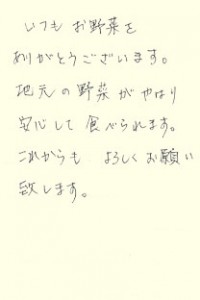 いつも お野菜を
ありがとうございます。
地元の野菜がやはり
安心して食べられます。
これからも よろしくお願い
致します。